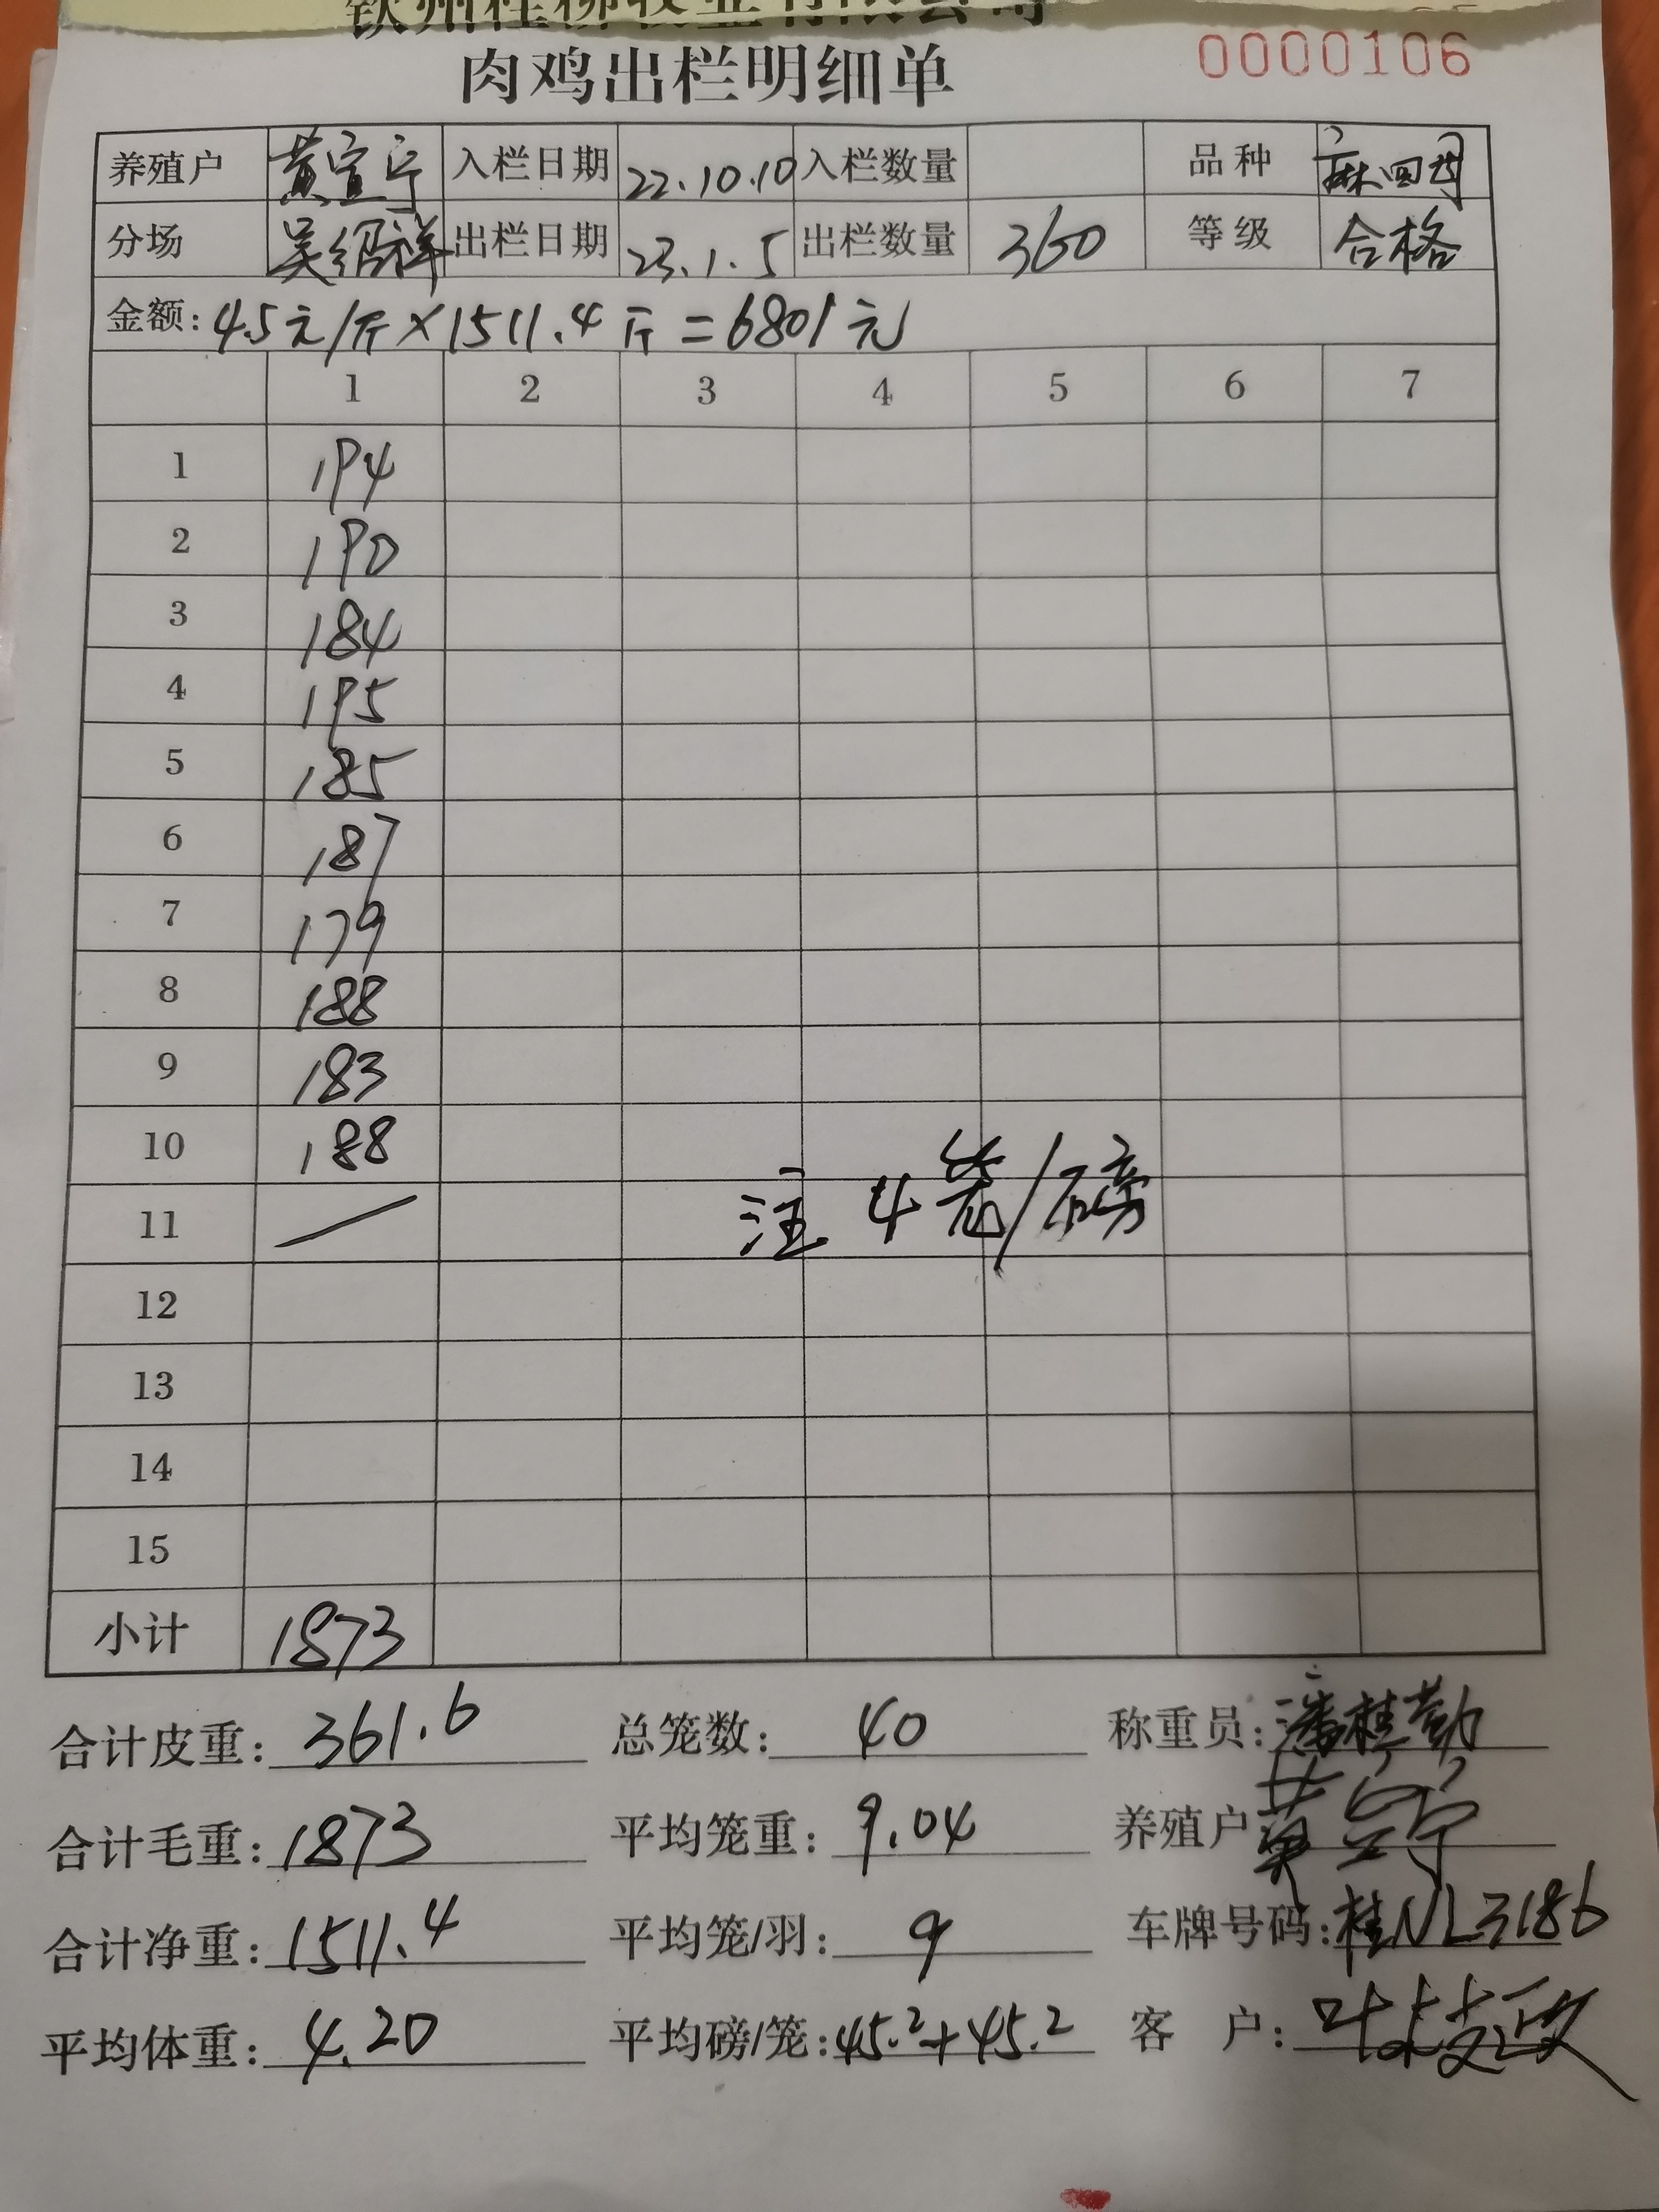 肉鸡出栏明细单 0000106
养殖户 黄宣宁 入栏日期 22.10.10 入栏数量 品种
分场 吴绍祥 出栏日期 23.1.5 出栏数量 360 等级 合格
金额: 4.5元/斤×1511.4斤=6801元
1 2 3 4 5 6 7
1 194
2 190
3 184
4 195
5 185
6 187
7 179
8 188
9 183
10 188
11 注 4笼/磅
12
13
14
15
小计 1873
合计皮重: 361.6 总笼数: 40 称重员: 潘桂勤
合计毛重: 1873 平均笼重: 9.04 养殖户
合计净重: 1511.4 平均笼/羽: 9 车牌号码: 桂NL3186
平均体重: 4.20 平均磅/笼: 45.2+45.2 客户: